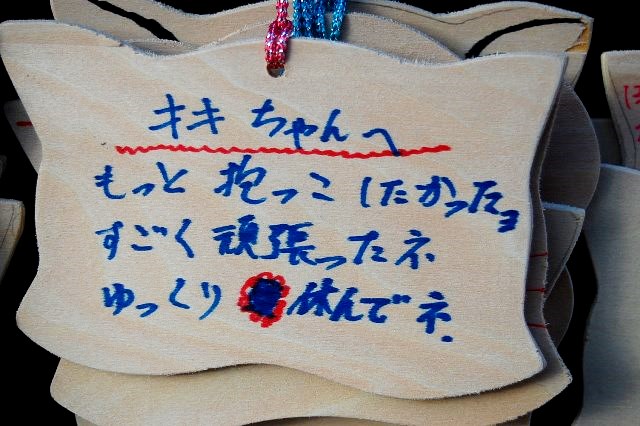 キキちゃんへ
もっと抱っこしたかったヨ
すごく頑張ったネ
ゆっくり休んでネ.